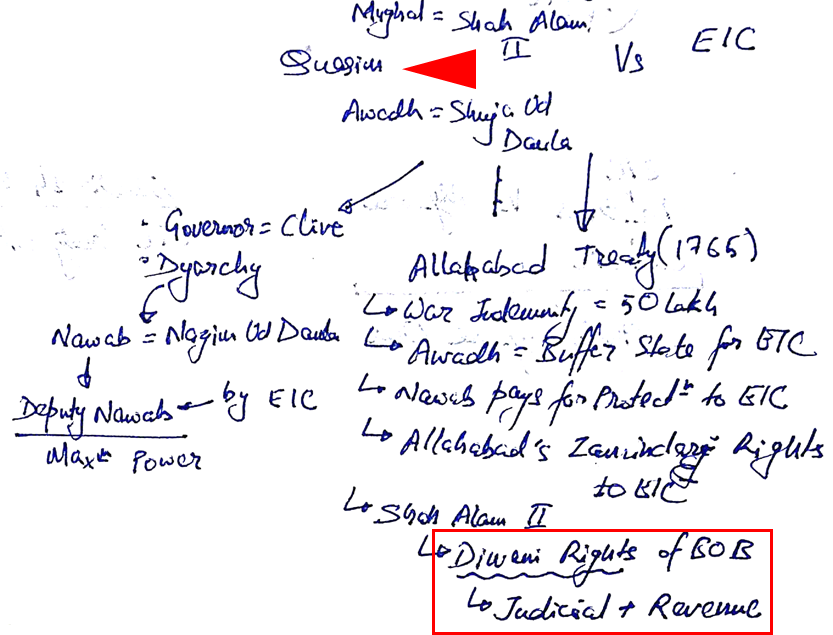 Mughal = Shah Alam II
Vs EIC
Quasim
Awadh = Shuja Ud Daula
Governor = Clive
Dyarchy
Nawab = Nazim Ud Daula
Deputy Nawab
by EIC
Max<sup>m</sup> Power
Allahabad Treaty (1765)
War Indemnity = 50 lakh
Awadh = Buffer State for EIC
Nawab pays for Protect<sup>n</sup> to EIC
Allahabad's Zamindary Rights
to EIC
Shah Alam II
Diwani Rights of BOB
Judicial + Revenue